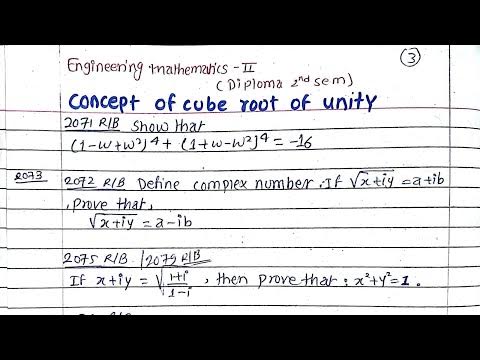 ③
Engineering mathematics - II
(Diploma 2nd sem)
Concept of cube root of unity
2071 R/B Show that
(1-ω+ω²)⁴ + (1+ω-ω²)⁴ = -16
2073 2072 R/B Define complex number. If √x+iy = a+ib
, prove that,
√x+iy = a-ib
2075 R/B / 2079 R/B
If x+iy = √(1+i/1-i) , then prove that : x²+y²=1.